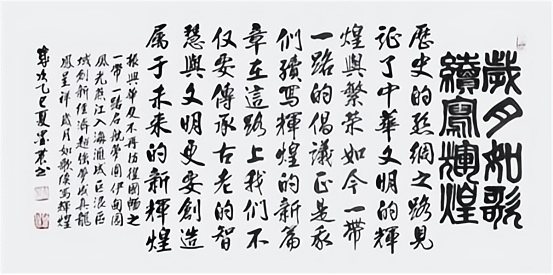 歲月如歌
續寫輝煌
歷史的絲綢之路見
证了中华文明的輝
煌與繁荣如今一带
一路的倡議正是我
们續寫輝煌的新篇
章在這路上我们不
仅要傳承古老的智
慧與文明更要創造
属于未来的新輝煌
振興華夏不再彷徨國暢之
一带一路名就夢圆伊甸园
风光江入海滙成巨浪區
域創新經濟超級夢成真龍
鳳呈祥歲月如歌續寫輝煌
歲次乙巳夏書